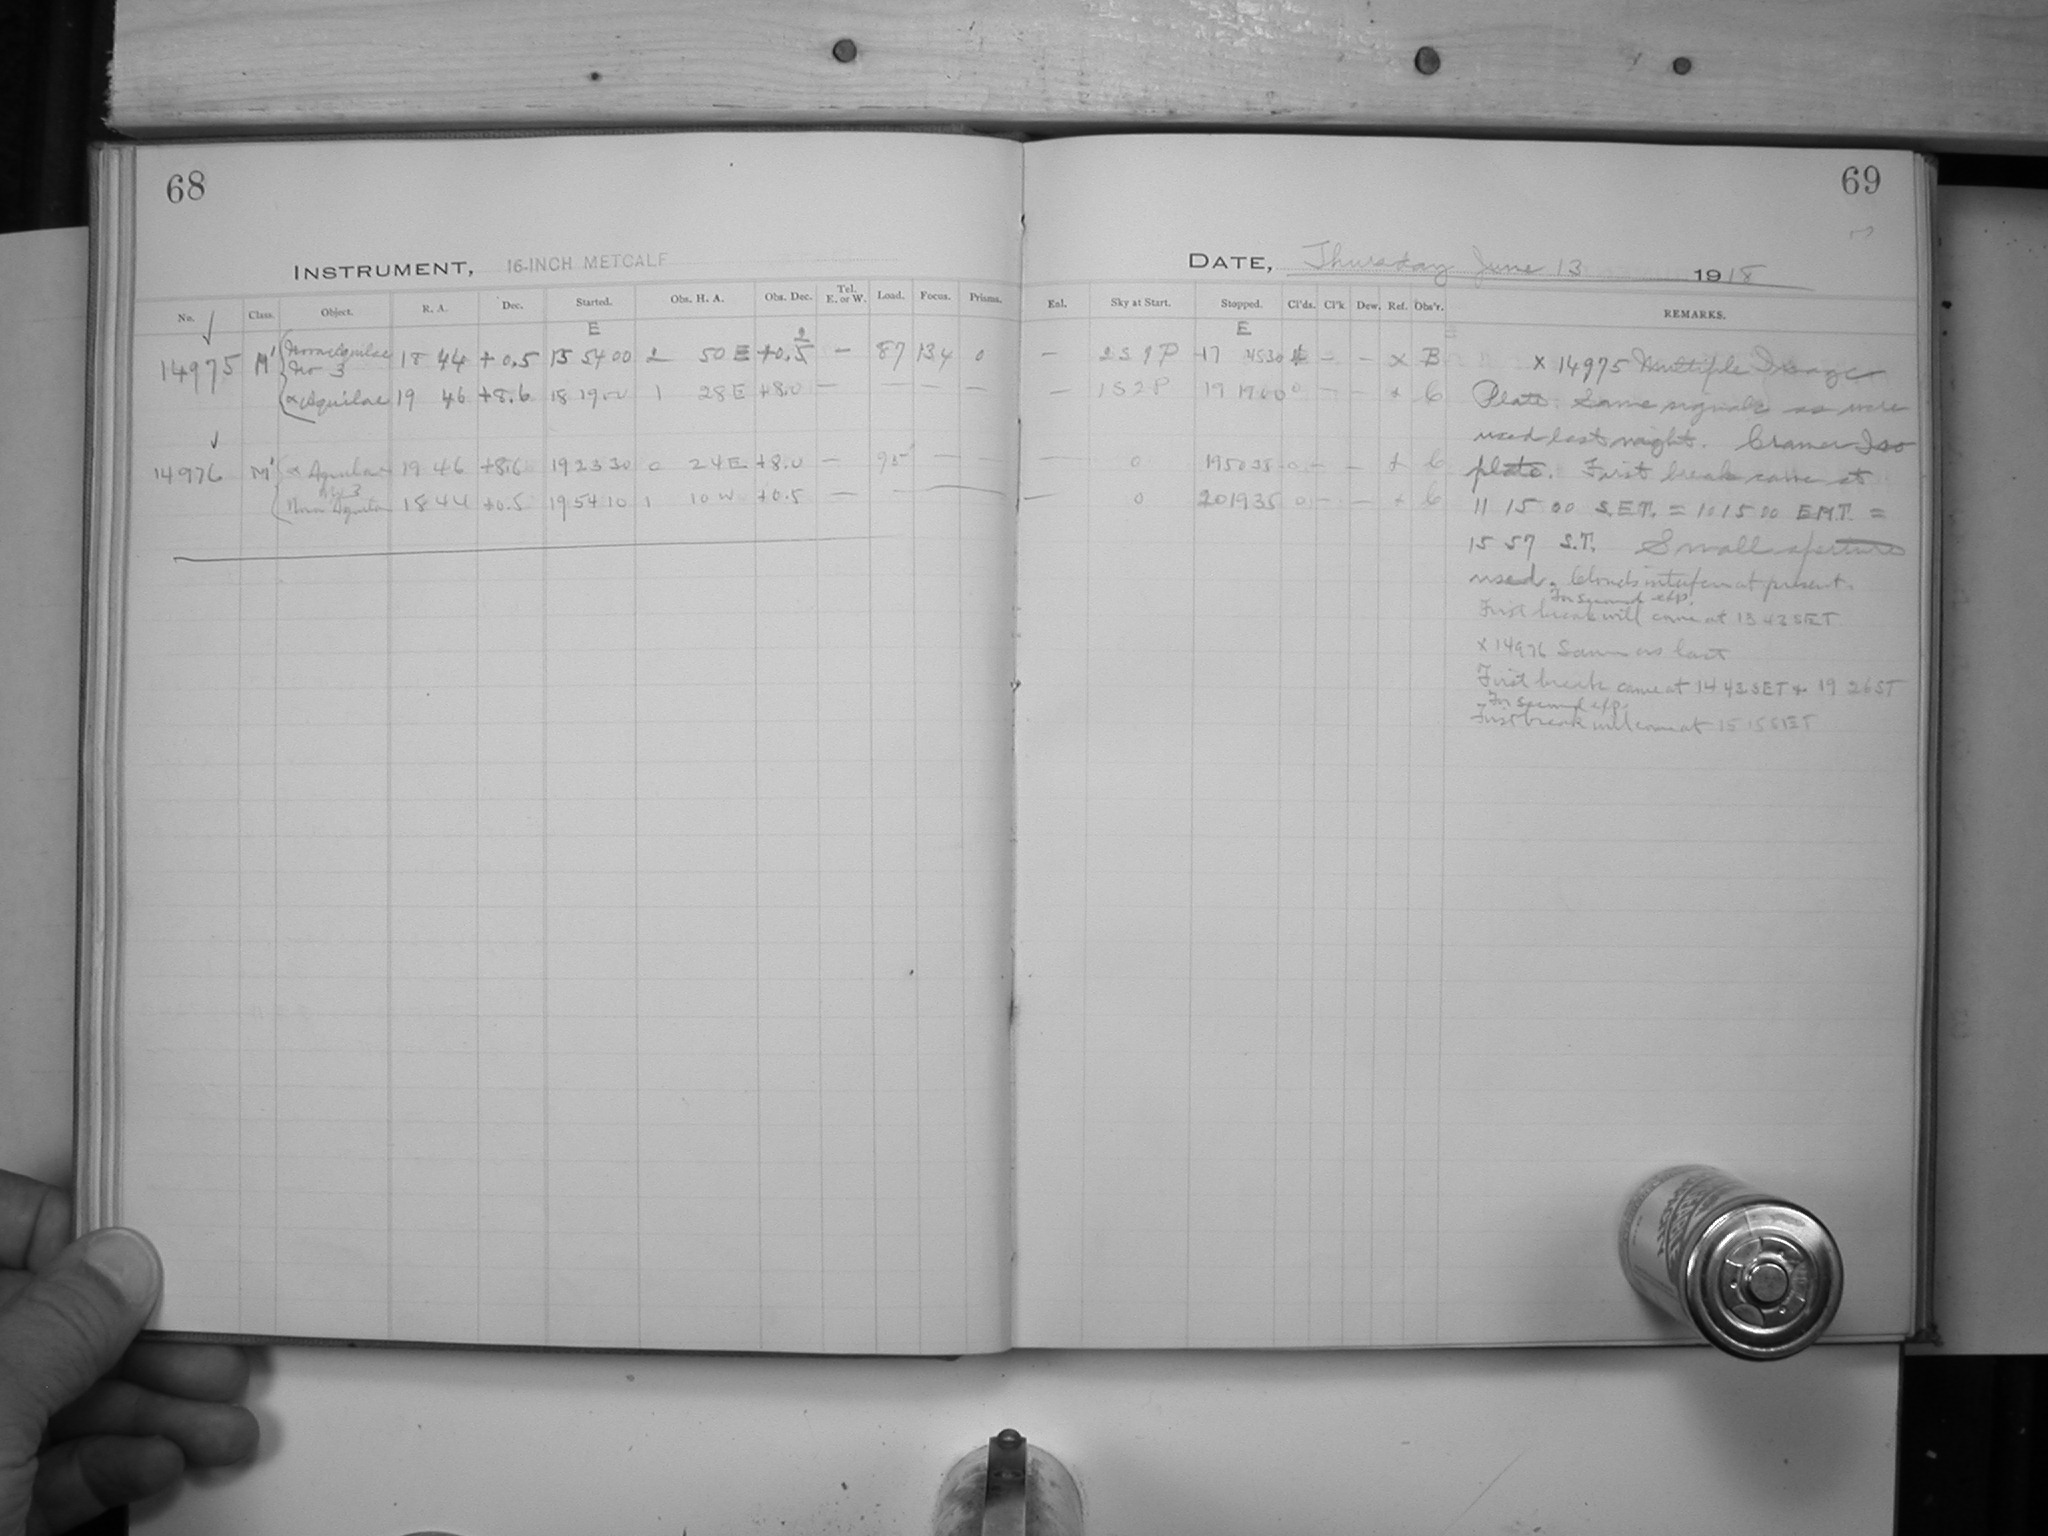 68
INSTRUMENT, 16-INCH METCALF
No. Class. Object. R. A. Dec. Started. Obs. H. A. Obs. Dec. Tel. E. or W. Load. Focus. Prisms.
E
14975 M' Nova Aquilae No 3 18 44 +0.5 15 54 00 2 50 E +0.5 — 87 134 0
α Aquilae 19 46 +8.6 18 19 00 1 28 E +8.0 — — — —
14976 M' α Aquilae 19 46 +8.6 19 23 30 0 24 E +8.0 — 95 — —
No 3
Nova Aquilae 18 44 +0.5 19 54 10 1 10 W +0.5 — — — —
69
DATE, Thursday June 13 1918
Enl. Sky at Start. Stopped. Cl'ds. Cl'k. Dew. Ref. Obs'r. REMARKS.
E
— 2 S 9 P 17 45 30 — — x B
— 1 S 2 P 19 19 00 0 — — x C
— 0 19 50 35 0 — — x C
— 0 20 19 35 0 — — x C
x 14975 Multiple Image
Plate. Same signals as were
used last night. Cramer Iso
plate. First break came at
11 15 00 S.E.T. = 10 15 00 E.M.T. =
15 57 S.T. Small aperture
used. Clouds interfere at present.
For second exp.
First break will come at 13 43 SET
x 14976 Same as last
First break came at 14 43 SET & 19 26 ST
For second exp.
First break will come at 15 15 SET